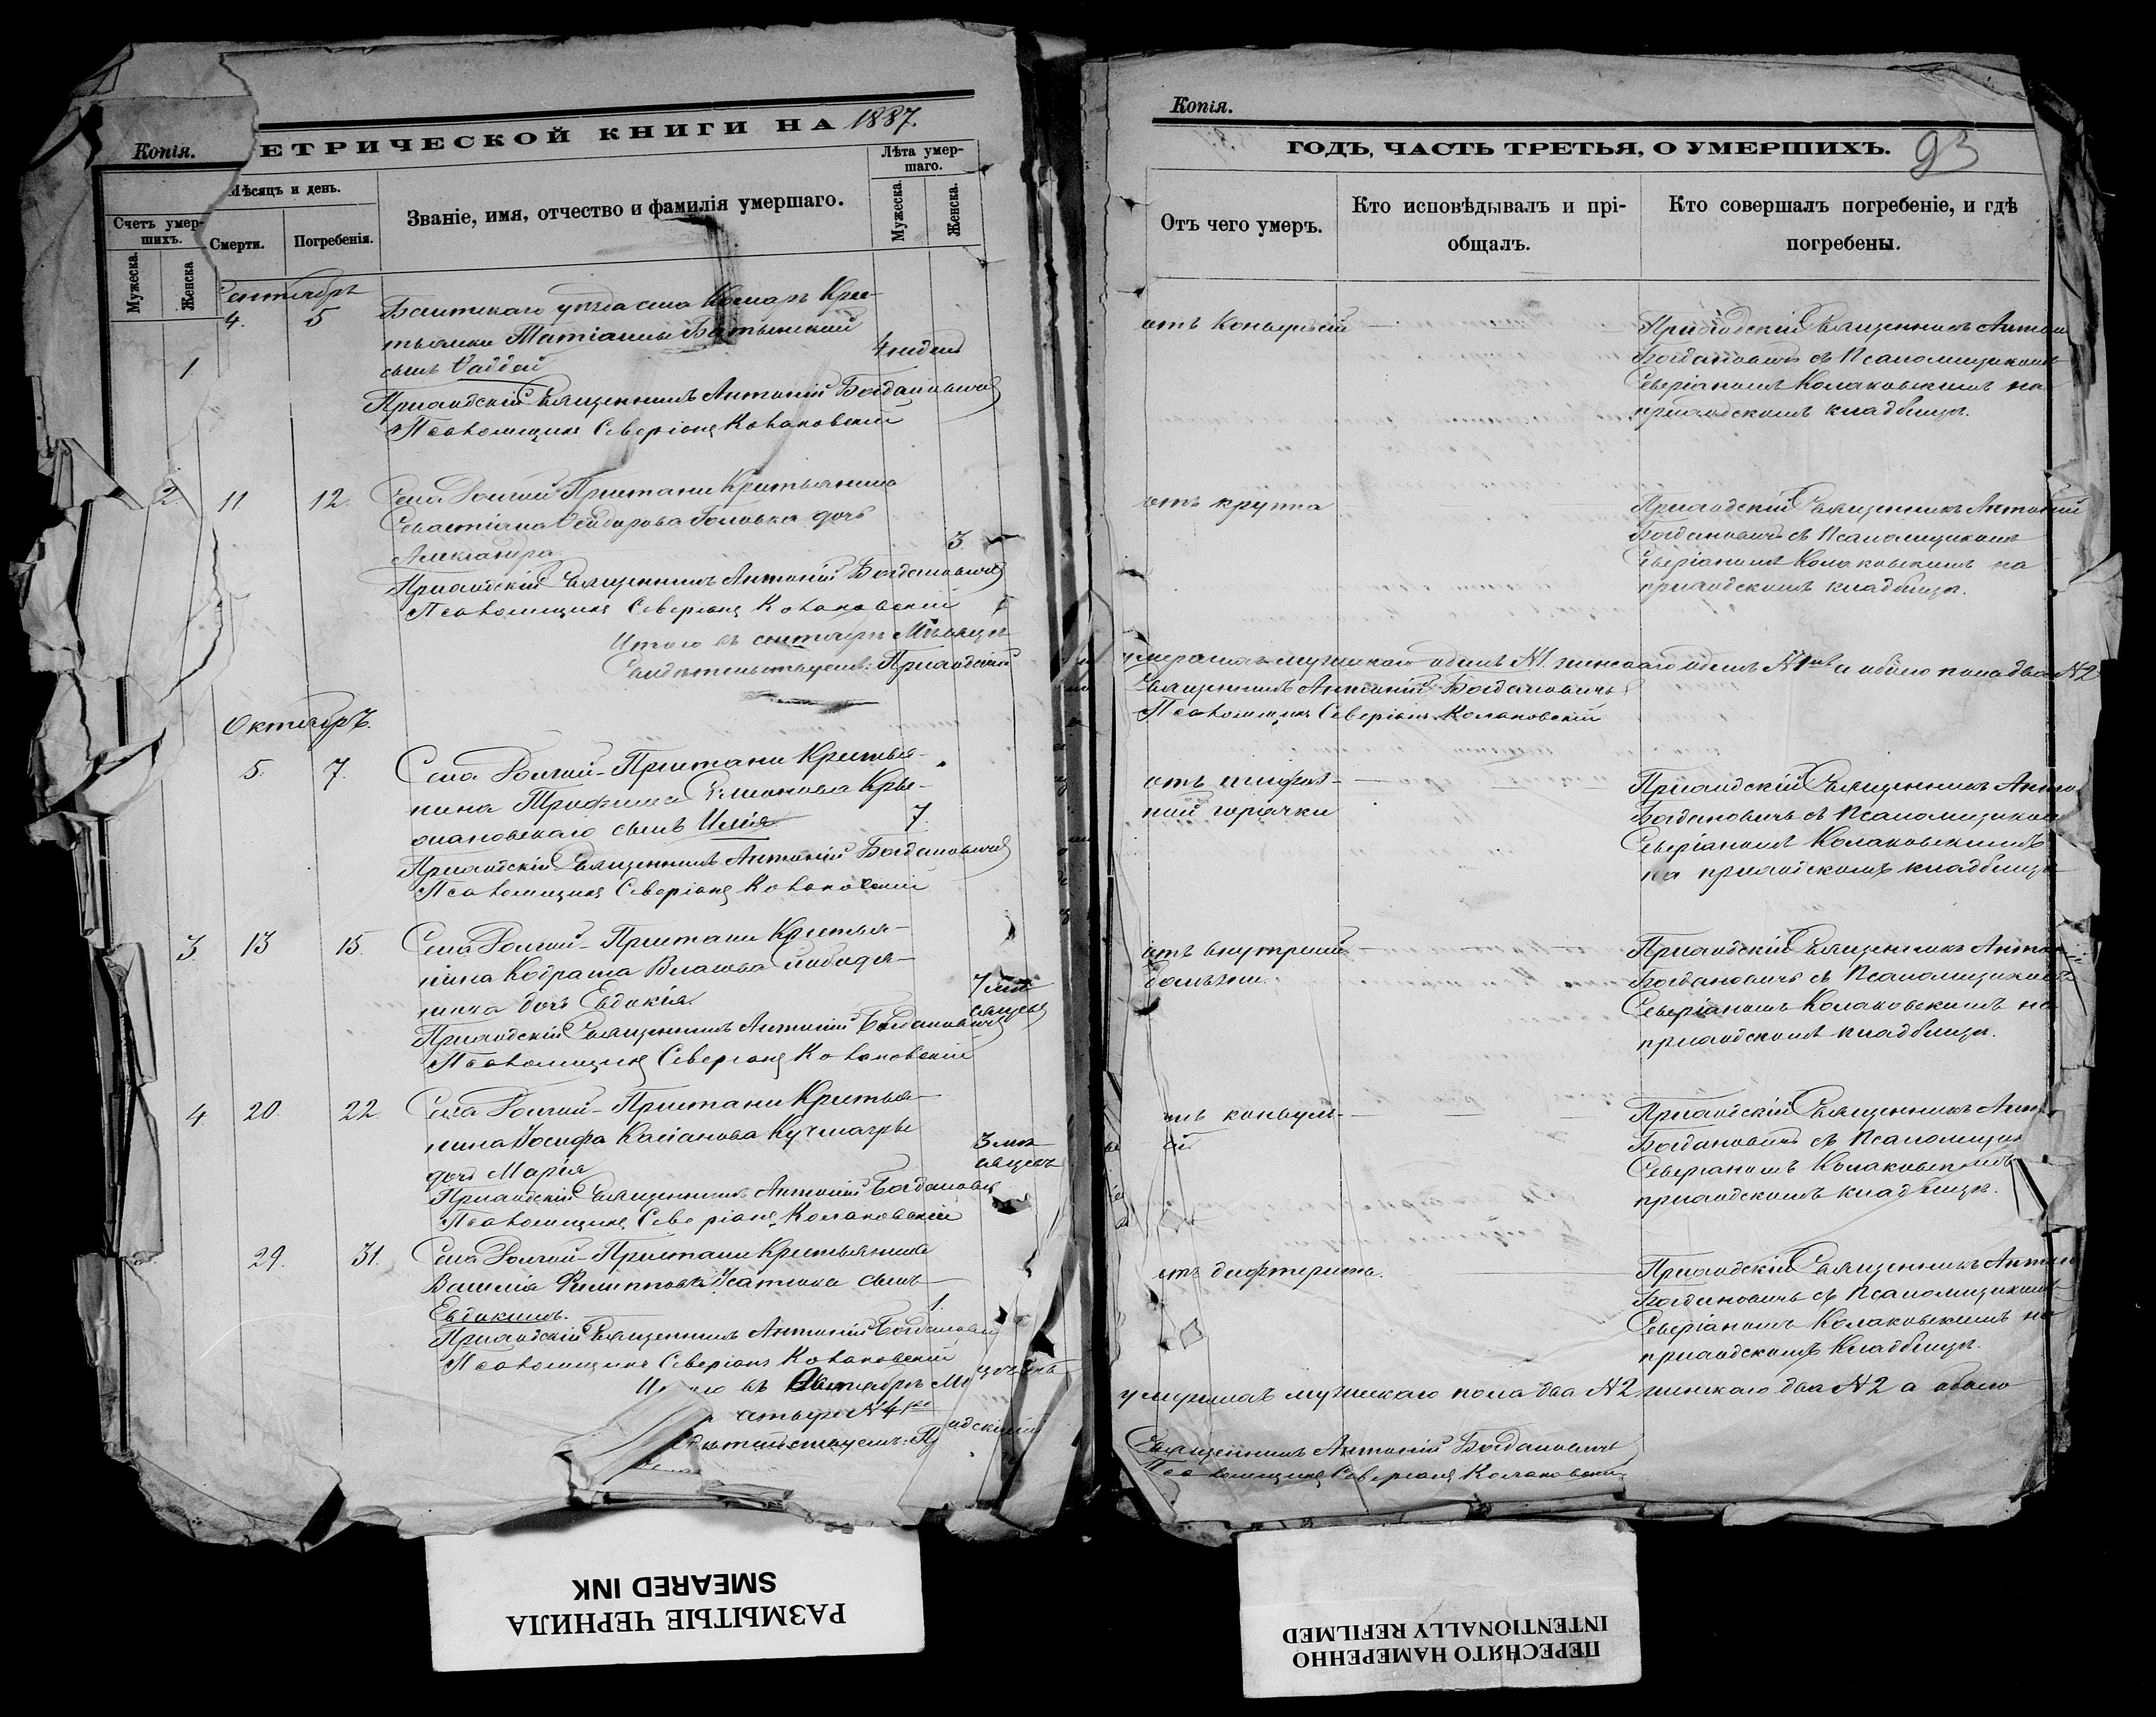 Копія.
ЕТРИЧЕСКОЙ КНИГИ НА 1887.
Мѣсяцъ и день.
Званіе, имя, отчество и фамилія умершаго.
Лѣта умер-
шаго.
Счетъ умер-
шихъ.
Смерти.
Погребенія.
Мужеска.
Женска
Мужеска.
Женска.
Сентябрь
1. 4. 5
Балтскаго уѣзда села
сынъ Фаддей
4 недели
Приходскій Священникъ Антоній Богдановичъ
Псаломщикъ Северіанъ Колаковскій
2. 11. 12.
Села Долгой Пристани Крестьянина
Севастіана Головка дочь
Александра
3.
Приходскій Священникъ Антоній Богдановичъ
Псаломщикъ Северіанъ Колаковскій
Итого въ сентябрѣ Мѣсяцѣ
Свидетельствуемъ: Приходскій
Октябрь.
5. 7.
Села Долгой-Пристани Крестья-
нина Трофима
сынъ Илія
7.
Приходскій Священникъ Антоній Богдановичъ
Псаломщикъ Северіанъ Колаковскій
3. 13 15.
Села Долгой-Пристани Крестья-
нина Кодрата Власова
дочь Евдокія.
7 мѣ
сяцевъ
Приходскій Священникъ Антоній Богдановичъ
Псаломщикъ Северіанъ Колаковскій
4 20. 22
Села Долгой-Пристани Крестья-
нина Іосифа Касіанова Кучмагры
дочь Марія
3 мѣ
сяцевъ
Приходскій Священникъ Антоній Богдановичъ
Псаломщикъ Северіанъ Колаковскій
29. 31.
Села Долгой-Пристани Крестьянина
Василія Филиппова Усатюка сынъ
Евдокимъ.
1.
Приходскій Священникъ Антоній Богданович
Псаломщикъ Северіанъ Колаковскій
въ Октябрѣ
Копія.
ГОДЪ, ЧАСТЬ ТРЕТЬЯ, О УМЕРШИХЪ. 93
Отъ чего умеръ.
Кто исповѣдывалъ и прі-
общалъ.
Кто совершалъ погребеніе, и гдѣ
погребены.
отъ Конвульсій
Приходскій Священникъ Антоні
Богдановичъ съ Псаломщикомъ
Северіаномъ Колаковскимъ на
приходскомъ кладбищѣ.
отъ крупа
Приходскій Священникъ Антоній
Богдановичъ съ Псаломщикомъ
Северіаномъ Колаковскимъ на
приходскомъ кладбищѣ.
умершихъ мужскаго одинъ №1. женскаго одинъ №1 а обоего пола два №2
Священникъ Антоній Богдановичъ
Псаломщикъ Северіанъ Колаковскій
отъ тифоз-
ной горячки
Приходскій Священникъ Анто
Богдановичъ съ Псаломщиком
Северіаномъ Колаковскимъ
на приходскомъ кладбищѣ
отъ внутрней
болѣзни.
Приходскій Священникъ Антон
Богдановичъ съ Псаломщикомъ
Северіаномъ Колаковскимъ на
приходскомъ кладбищѣ.
отъ конвуль-
сій
Приходскій Священникъ Ант
Богдановичъ съ Псаломщик
Северіаномъ Колаковскимъ
приходскомъ кладбищѣ.
отъ дифтерита.
Приходскій Священникъ Антон
Богдановичъ съ Псаломщикомъ
Северіаномъ Колаковскимъ на
приходскомъ Кладбищѣ.
умершихъ мужскаго пола два №2 женскаго два №2 а обоего
Священникъ Антоній Богдановичъ
Псаломщикъ Северіанъ Колаковскій
РАЗМЫТЫЕ ЧЕРНИЛА
SMEARED INK
ПЕРЕСНЯТО НАМЕРЕННО
INTENTIONALLY REFILMED